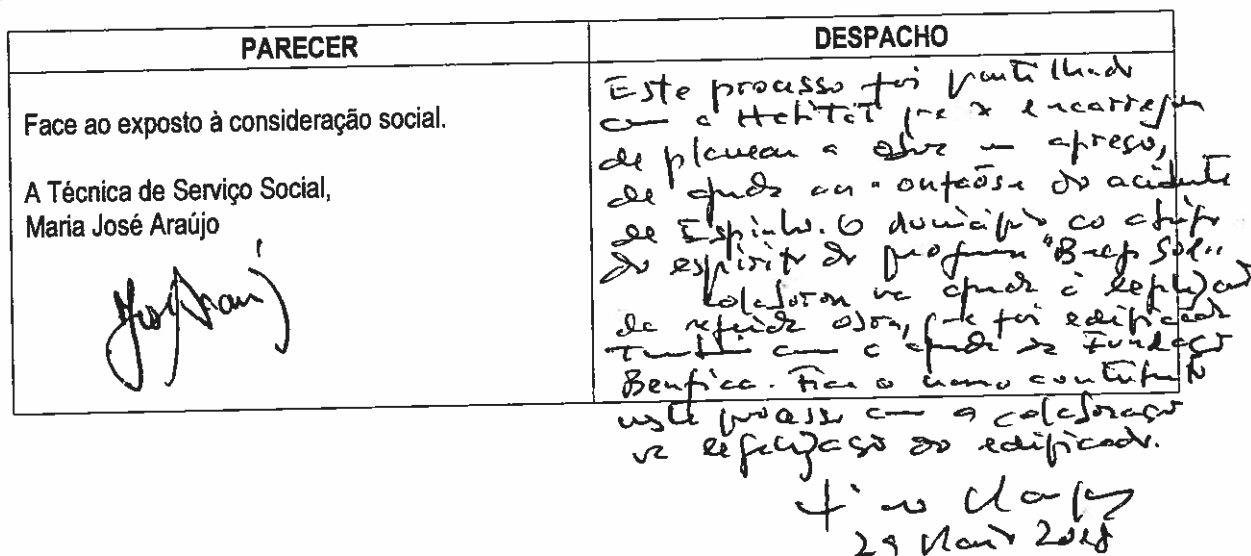 PARECER
DESPACHO
Face ao exposto à consideração social.
A Técnica de Serviço Social,
Maria José Araújo
Este processo foi partilhado
com a Habitat que se encarregou
de planear a obra em apreço,
de ajuda do acidente
de Espinho. O município ao abrigo
do espírito do programa
colaborou na ajuda à legalização
da referida obra, que foi edificada
também com a ajuda da Fundação
Benfica. Fica o nosso contributo
neste processo com a colaboração
na legalização do edificado.
29 Maio 2018